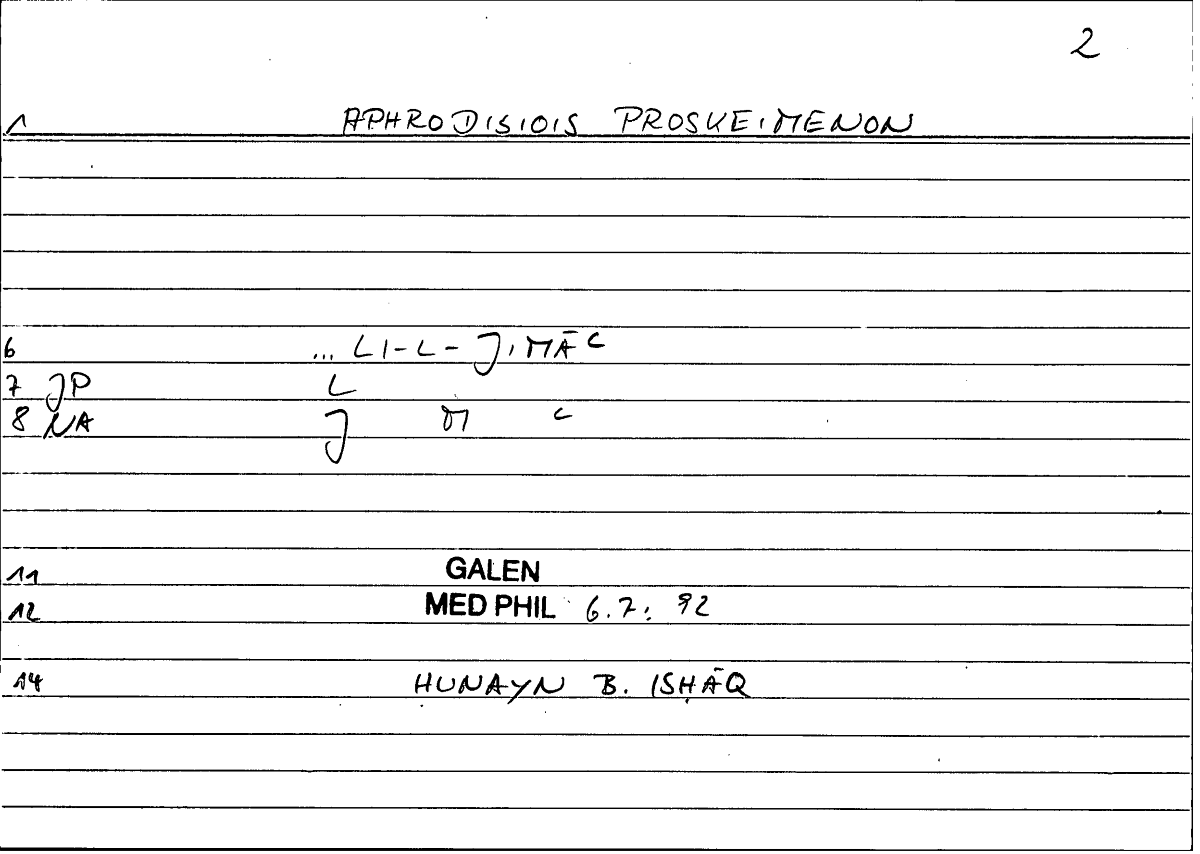 2
1 APHRODISIOIS PROSKEIMENON
6 ... LI-L-JIMĀʿ
7 JP L
8 NA J M ʿ
11 GALEN
12 MED PHIL 6.7.92
14 ḤUNAYN B. ISḤĀQ